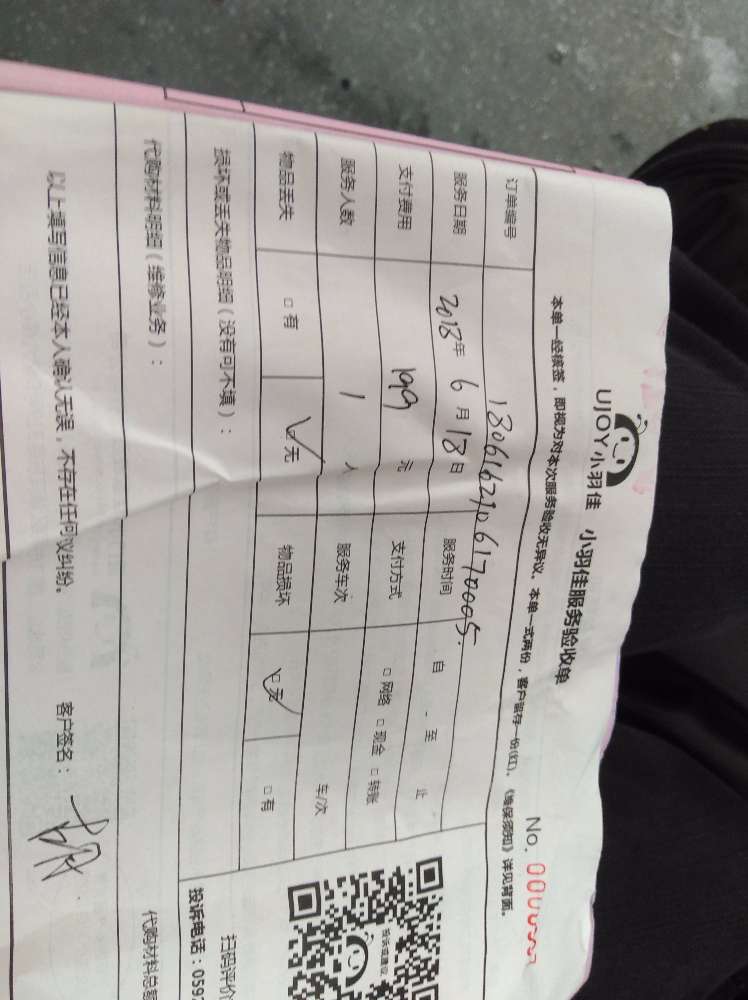 UJOY小羽佳 小羽佳服务验收单
No.
本单一经核签，即视为对本次服务验收无异议。本单一式两份，客户留存一份(红)。《维保须知》详见背面。
订单编号
服务日期 2018年 6月 18日 服务时间 自 - 至 止
支付费用 199 元 支付方式 □网络 □现金 □转账
服务人数 1 人 服务车次 车/次
物品丢失 □有 ☑无 物品损坏 ☑无 □有
损坏或丢失物品明细（没有可不填）：
扫码评价
投诉电话：059
代购材料明细（维修业务）：
代购材料总额
以上填写信息已经本人确认无误，不存在任何纠纷。 客户签名：
投诉或建议